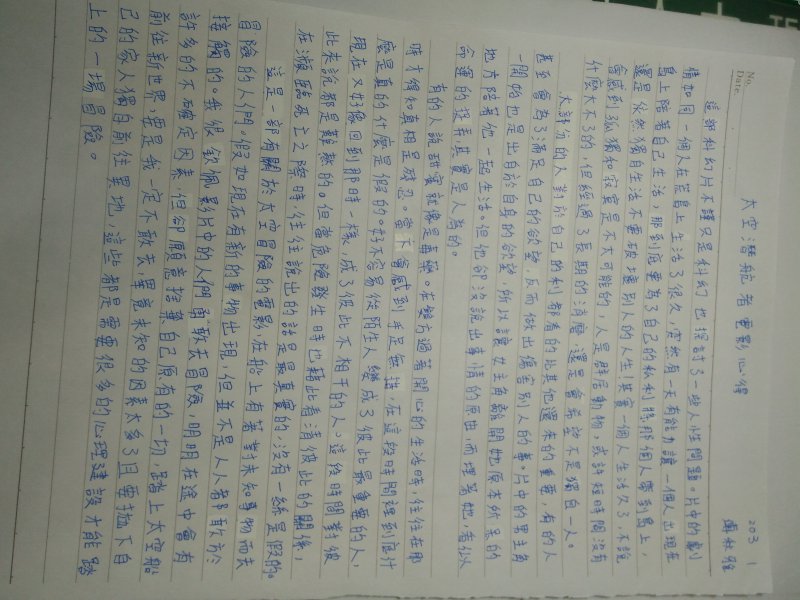 No.
Date
太空潛航者電影心得
203 1
這部科幻片不謹只是科幻也探討了一些人性問題。片中的劇
情如同一個人在荒島上生活了很久,突然有一天有能力讓一個人出現在
島上陪著自己生活,那到底要為了自己的私利將那個人帶到島上,
還是依然獨自生活不要破壞別人的人生。其實一個人生活久了,不說
會感到孤獨和寂寞是不大可能的,人是群居動物,或許短時間沒有
什麼大不了的,但經過了長期的消磨,還是會希望不是獨自一人。
大部份的人對於自己的利都看的比其他還來的重要,有的人
甚至會為了滿足自己的欲望,反而做出傷害別人的事。片中的男主角
一開始也是出自於自身的欲望,所以讓女主角離開她原本所屬的
地方陪著他一起生活。但他卻沒說出事情的原由,而埋著她,害似
命運的捉弄其實是人為的。
有的人說謊言就像是毒藥。在雙方過著開心的生活時,往往在那
時才得知真相是殘忍。當下會感到手足無措,在這段時間裡到底什
麼是真的什麼是假的。好不容易從陌生人變成了彼此最重要的人,
現在又好像回到那時一樣,成了彼此不相干的人。這段時間對彼
此來說都是難熬的。但當危險發生時也藉此看清彼此的關係,
在瀕臨死亡之際時往往說出的話是最真實的沒有一絲是假的。
這是一部有關於太空冒險的電影,在船上有著對未知事物而去
冒險的人們。假如現在有新的事物出現,但並不是人人都敢於
接觸的。我很欽佩影片中的人們勇敢去冒險,明明在途中會有
許多的不確定因素,但卻願意捨棄自己原有的一切踏上太空船
前往新世界,要是我一定不敢去,畢竟未知的因素太多了且要拋下自
己的家人獨自前往異地,這些都是需要很多的心理建設才能踏
上的一場冒險。